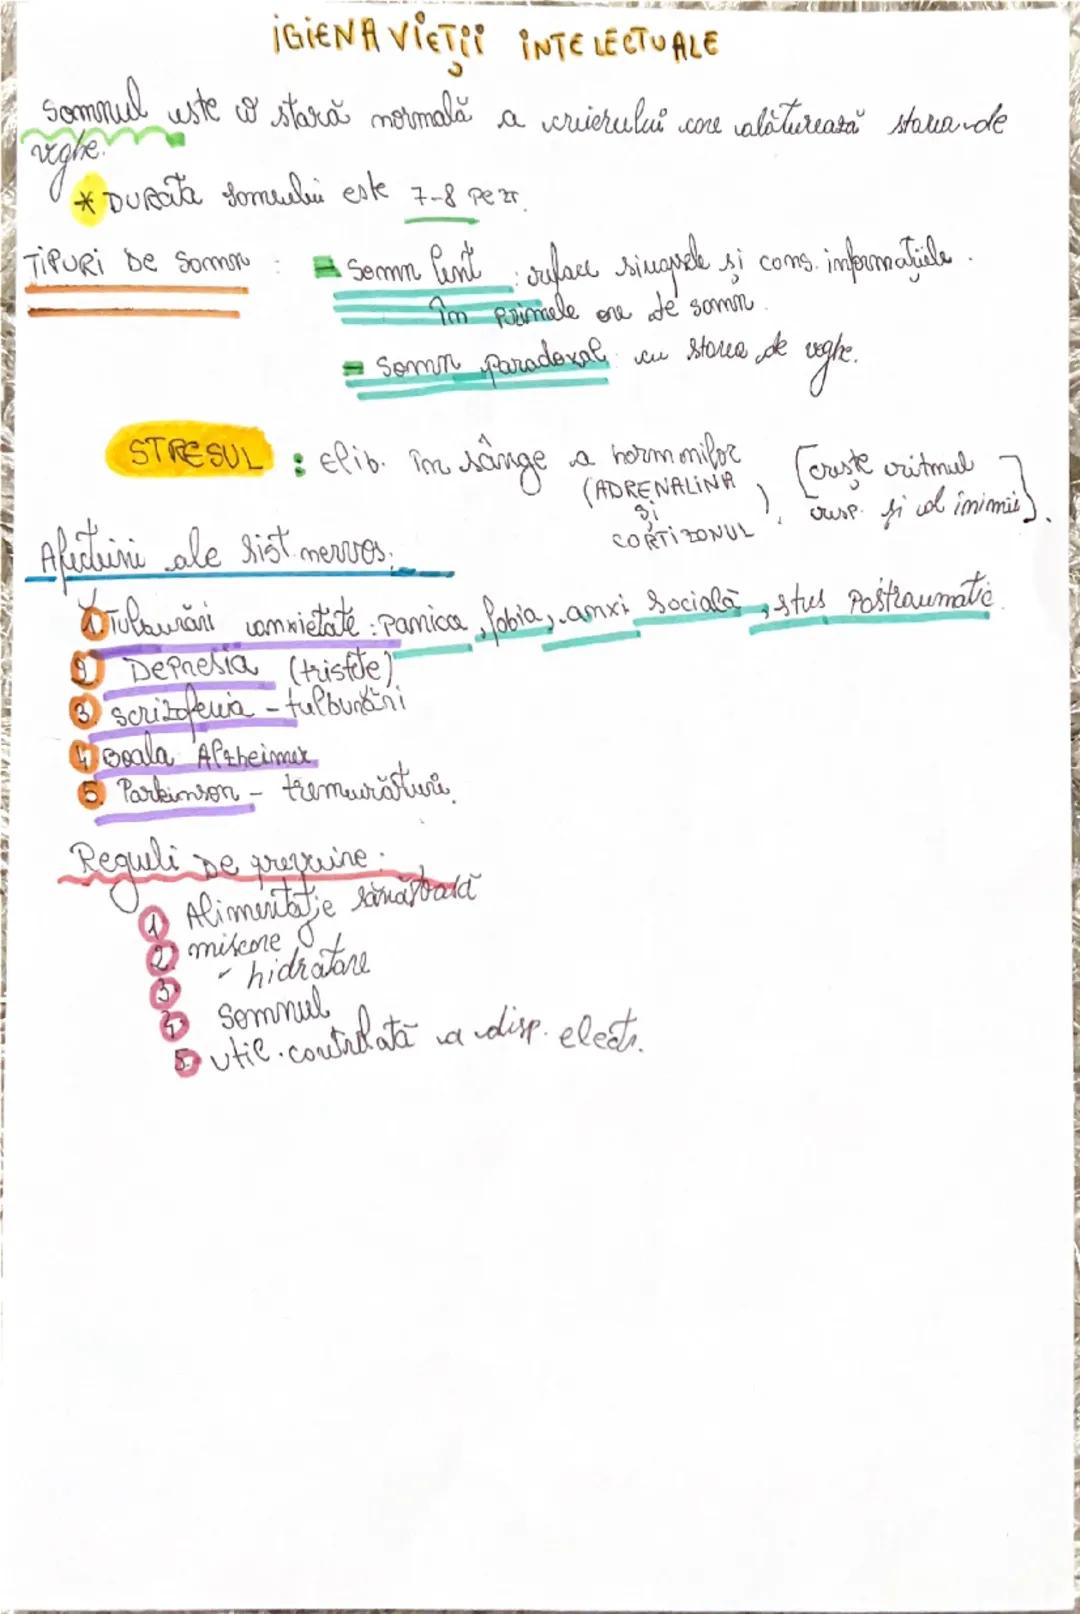 IGIENA VIEȚII INTELECTUALE
Somnul este o stară normală a creierului care alăturează starea de
veghe.
* DURATA somnului este 7-8 pe zi.
TIPURI De Somn : - Somn lent : reface sinapsele și cons. informațiile.
în primele ore de somn.
- Somn paradoxal cu starea de veghe.
STRESUL : Elib. în sânge a hormonilor [crește ritmul
(ADRENALINA și CORTIZONUL), resp. și al inimii].
Afecțiuni ale sist. nervos.
1. Tulburări anxietate : panica, fobia, anxi socială, stres Postraumatic.
2 Depresia (tristețe)
3. scrizofenia - tulburări
4 Boala Alzheimer
5. Parkinson - tremurături.
Reguli De prevenire.
1 Alimentație sănătoasă
2. miscare
3 - hidratare
4. Somnul
5. util. controlată a disp. electr.